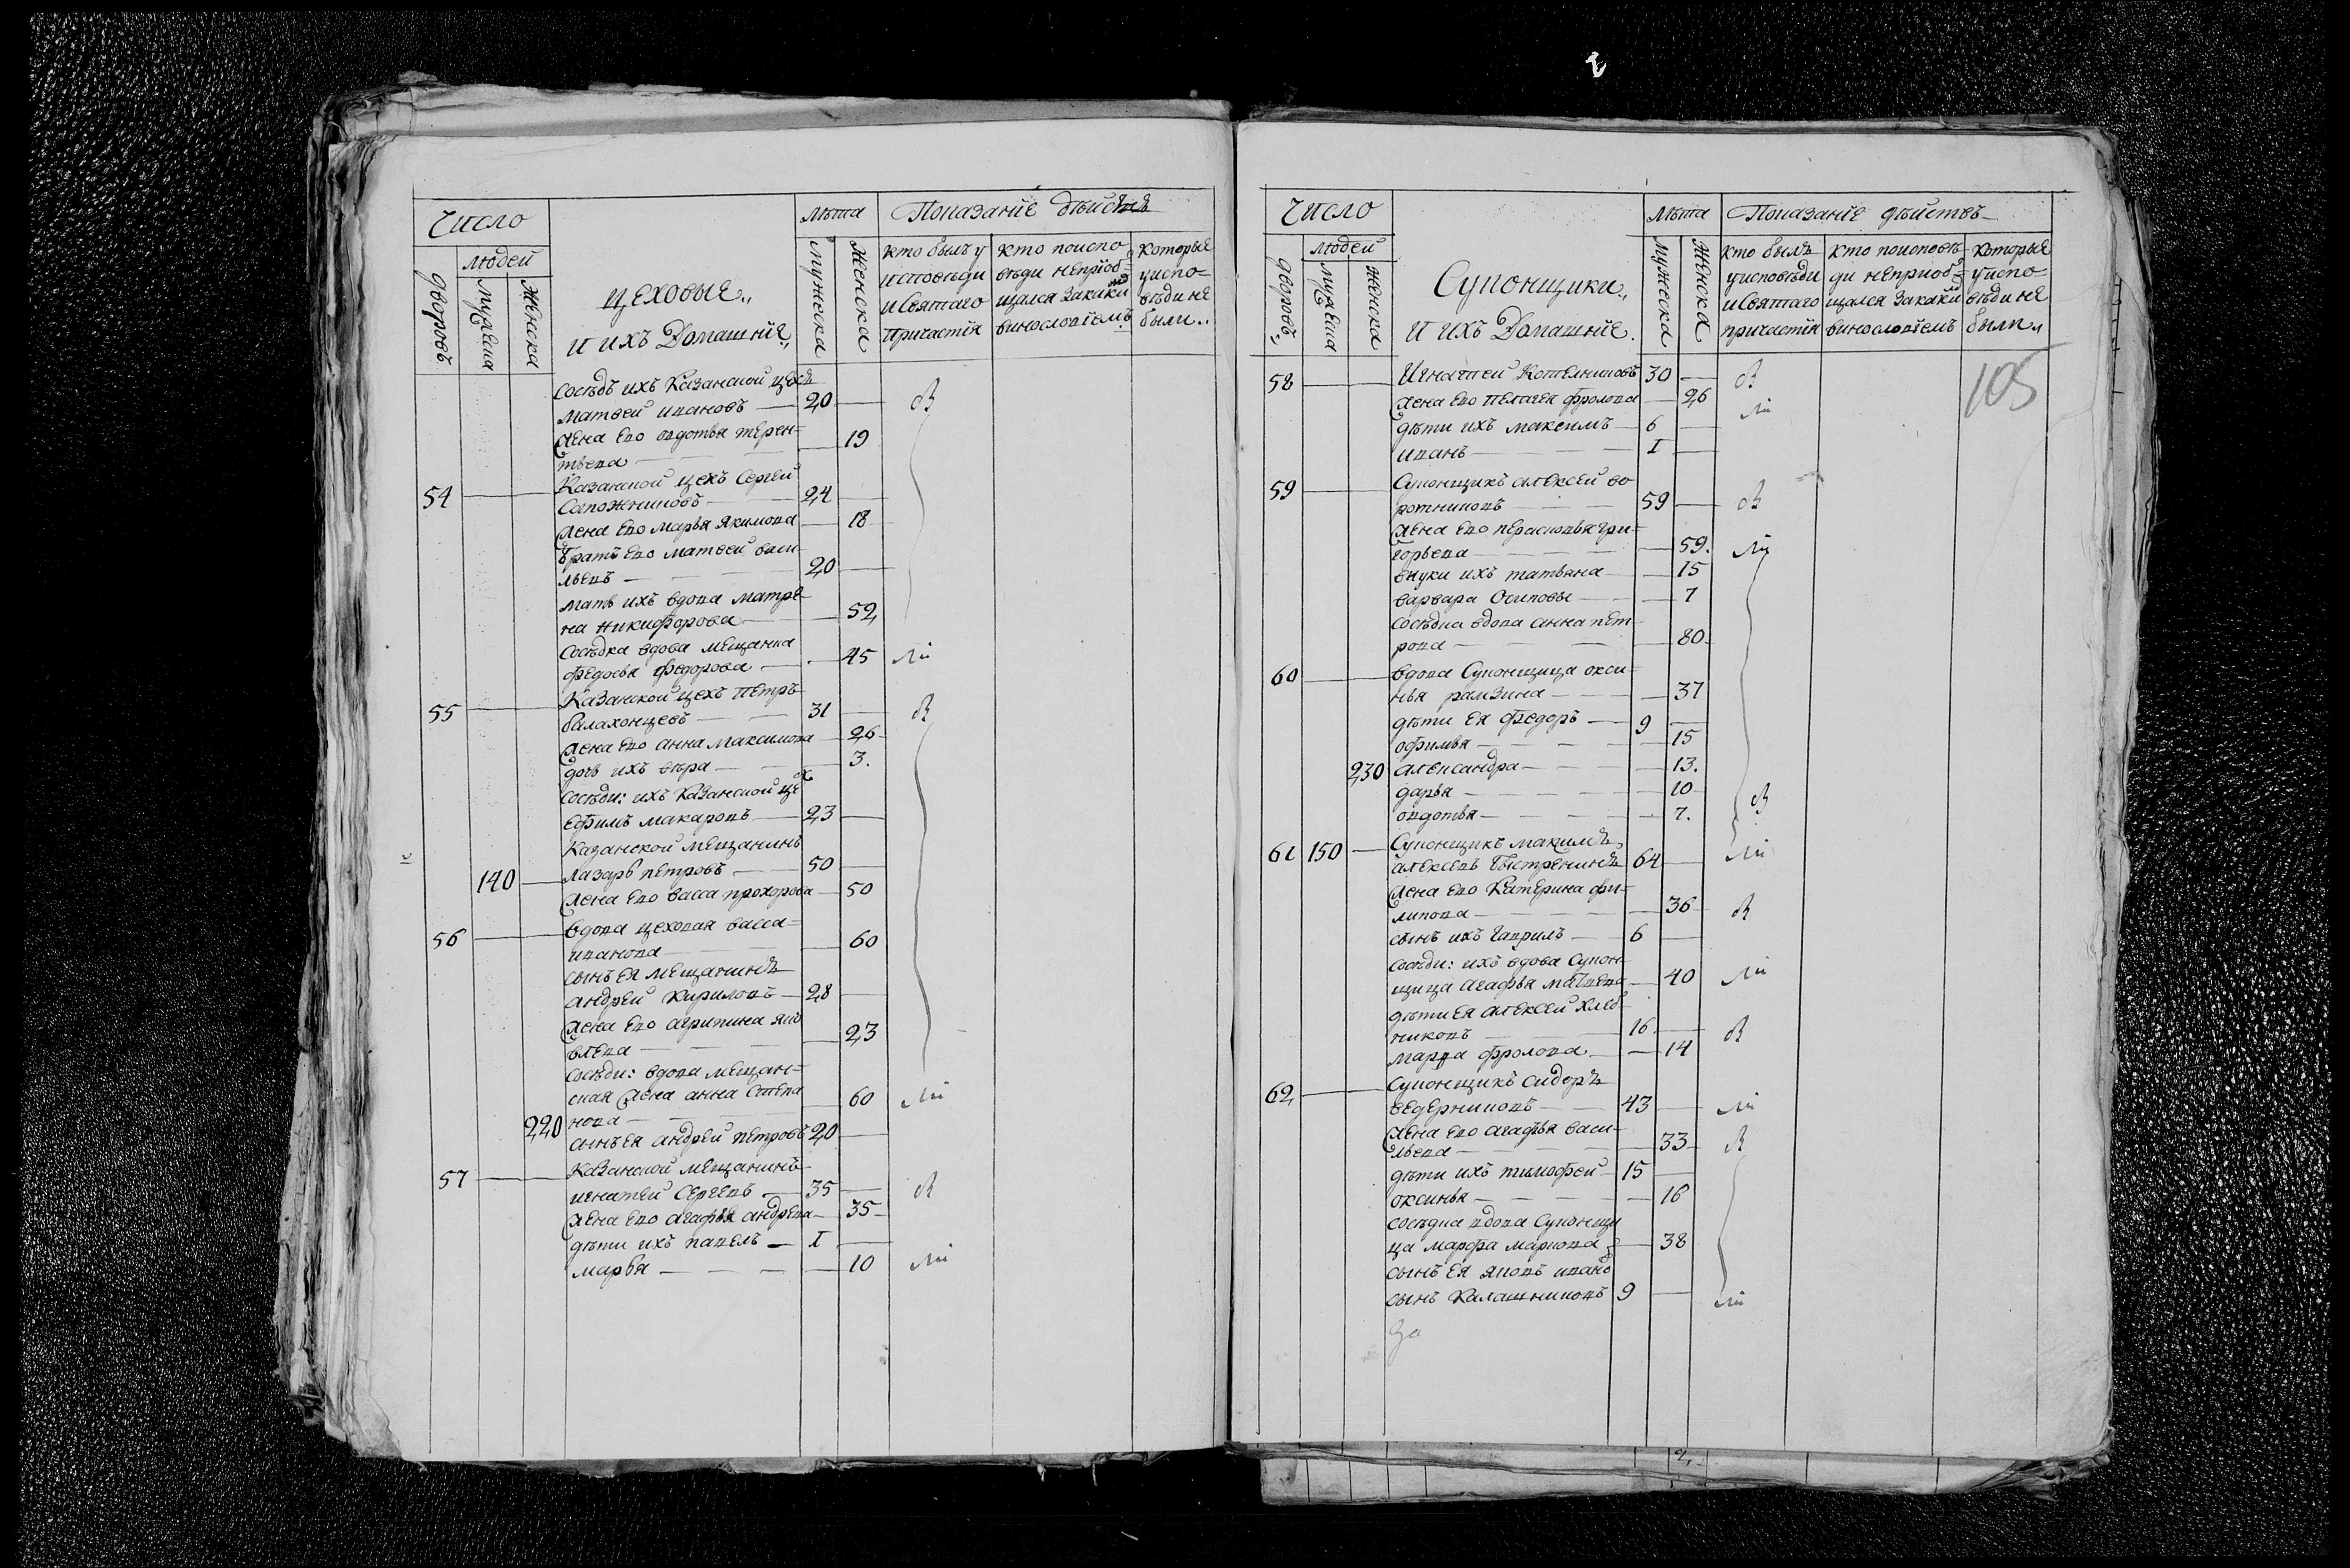 Число
Лѣта
Показаніе дѣйствъ
людей
дворовъ
мужеска
женска
цеховые
и ихъ Домашніе
мужеска
женска
кто былъ у
исповѣди
и Святаго
Причастія
кто поиспо
вѣди непріоб
щался закакимъ
винословіемъ
которые
уиспо
вѣди не
были
сосѣдъ ихъ Казанской цехъ
матвей ивановъ — 20 —
жена ево овдотья терен=
тьева — 19
54 — Казанской цехъ Сергей
Сапожниковъ — 24 —
жена ево марья якимова — 18
братъ ево матвей васи
льевъ — 20 —
мать ихъ вдова матре
на никифорова — 52
сосѣдка вдова мещанка
федосья федорова — 45
55 — Казанской цехъ петръ
балахонцевъ — 31 —
жена ево анна максимова — 26
дочь ихъ вѣра — 3.
сосѣди: ихъ Казанской цехъ
ефимъ макаровъ — 23 —
Казанской мещанинъ
140 — лазарь петровъ — 50 —
жена ево васса прохорова — 50
56 — вдова цеховая васса=
иванова — 60
сынъ ея мещанинъ
андрей кириловъ — 28 —
жена ево агрипина яко
влева — 23
сосѣди: вдова мещан=
ская жена анна степа — 60
220 нова —
сынъ ея андрей петровъ 20 —
57 — казанской мещанинъ
игнатей Сергеевъ — 35 —
жена ево агафья андрева — 35
дѣти ихъ павелъ — I —
марья — 10
Число
Лѣта
Показаніе дѣйствъ
людей
дворовъ
мужеска
женска
Супонщики
и ихъ Домашніе
мужеска
женска
кто былъ
уисповѣди
и Святаго
причастія
кто поисповѣ
ди непріоб
щался закакимъ
винословіемъ
которые
уиспо
вѣди не
были
105
58 — Игнатей Котелниковъ 30 —
жена ево пелагея фролова — 26
дѣти ихъ максимъ — 6 —
иванъ — I —
59 — Супонщикъ алексей во
ротниковъ — 59 —
жена ево перасковья гри=
горьева — 59.
внуки ихъ татьяна — 15
варвара Осиповы — 7
сосѣдка вдова анна пет
рова — 80
60 — вдова Супонщица окси
нья рамзина — 37
дѣти ея федоръ — 9 —
офимья — 15
230 александра — 13.
дарья — 10
овдотья — 7.
61 150 — Супонщикъ максимъ
алексевъ быстренинъ 64 —
жена ево Катерина фи=
липова — 36
сынъ ихъ Гаврилъ — 6 —
сосѣди: ихъ вдова супон
щица агафья матвева — 40
дѣти ея алексей хлеб
никовъ — 16 —
марфа фролова — 14
62 — Супонщикъ сидоръ
ведерниковъ — 43 —
жена ево агафья васи
льева — 33
дѣти ихъ тимофей — 15 —
оксинья — 16
сосѣдка вдова Супонщи
ца марфа маркова — 38
сынъ ея яковъ иванъ
сынъ Калашниковъ 9 —